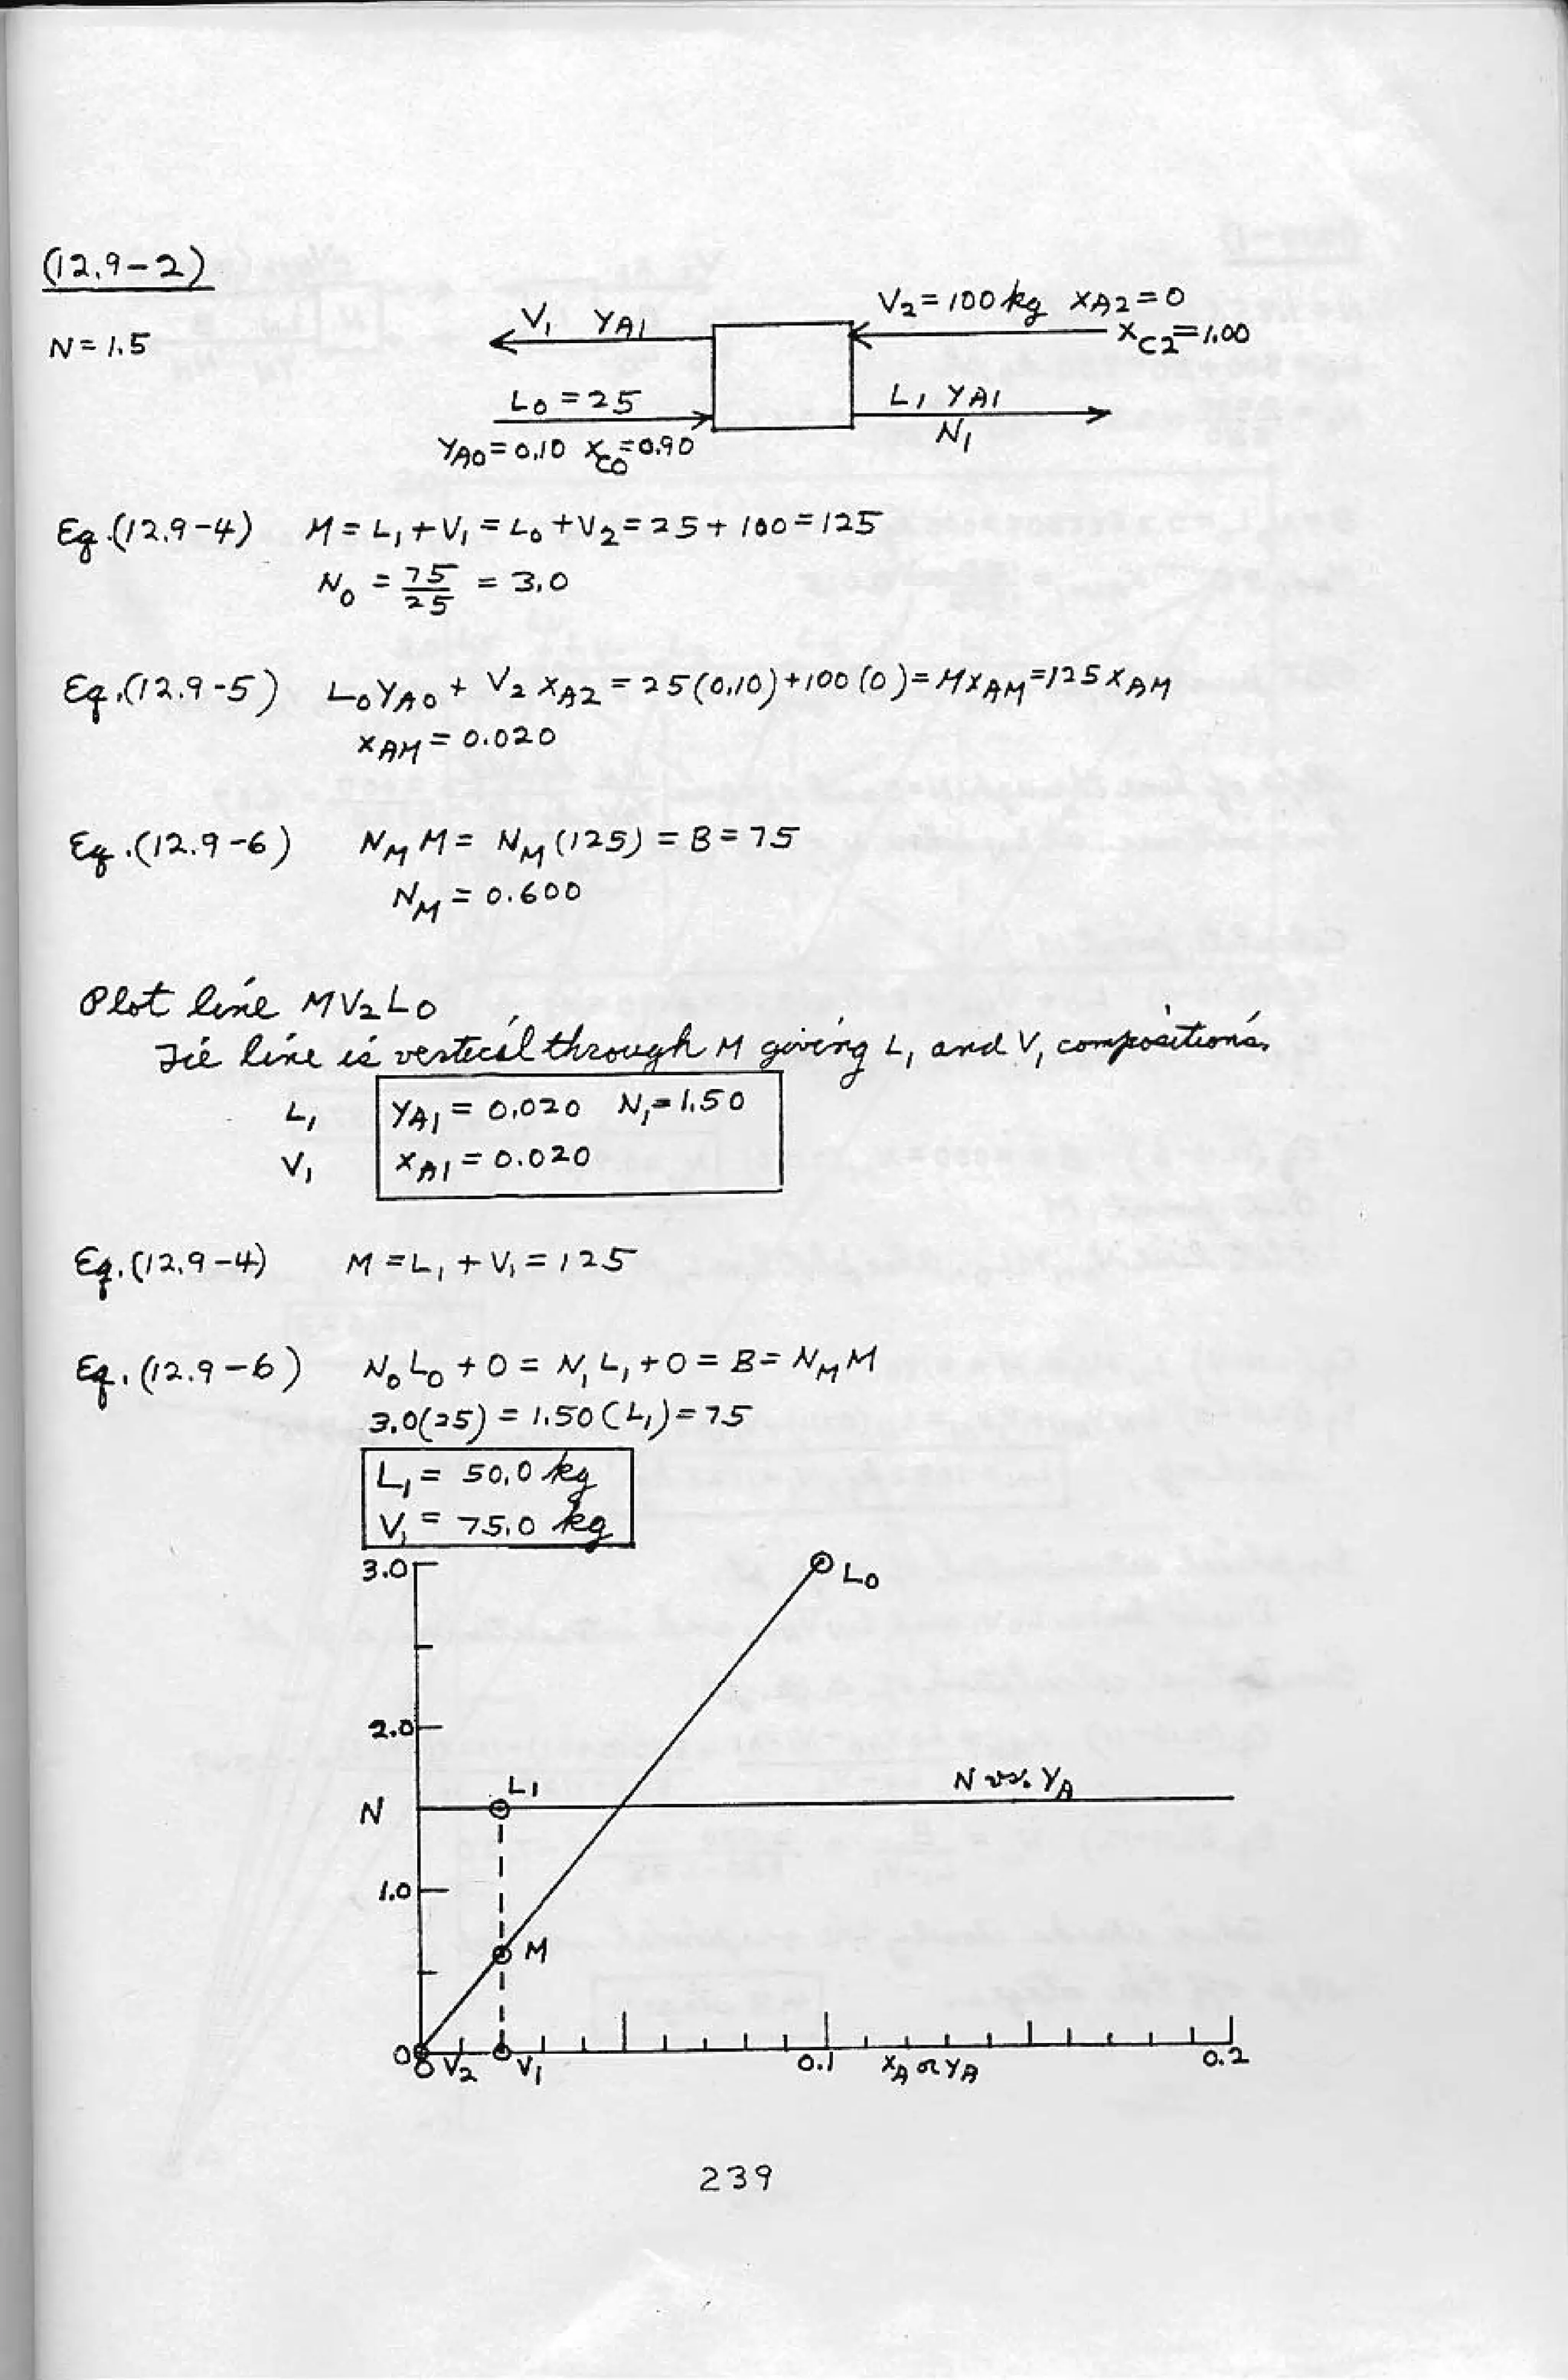 (12.9-2)
V₂ = 100 kg x_A2 = 0
V₁ Y_A1
x_C2 = 1.00
N = 1.5
L₀ = 25
L₁ Y_A1
N₁
Y_A0 = 0.10 x_C0 = 0.90
Eq. (12.9-4) M = L₁ + V₁ = L₀ + V₂ = 25 + 100 = 125
N₀ = 75/25 = 3.0
Eq. (12.9-5) L₀Y_A0 + V₂x_A2 = 25(0.10) + 100(0) = Mx_AM = 125x_AM
x_AM = 0.020
Eq. (12.9-6) N_M M = N_M(125) = B = 75
N_M = 0.600
Plot line MV₂L₀
Tie line is vertical through M giving L₁ and V₁ compositions.
L₁ Y_A1 = 0.020 N₁ = 1.50
V₁ x_A1 = 0.020
Eq. (12.9-4) M = L₁ + V₁ = 125
Eq. (12.9-6) N₀L₀ + 0 = N₁L₁ + 0 = B = N_M M
3.0(25) = 1.50(L₁) = 75
L₁ = 50.0 kg
V₁ = 75.0 kg
3.0
L₀
2.0
L₁
N vs. Y_A
N
1.0
M
0
V₂
V₁
0.1
x_A or Y_A
0.2
239